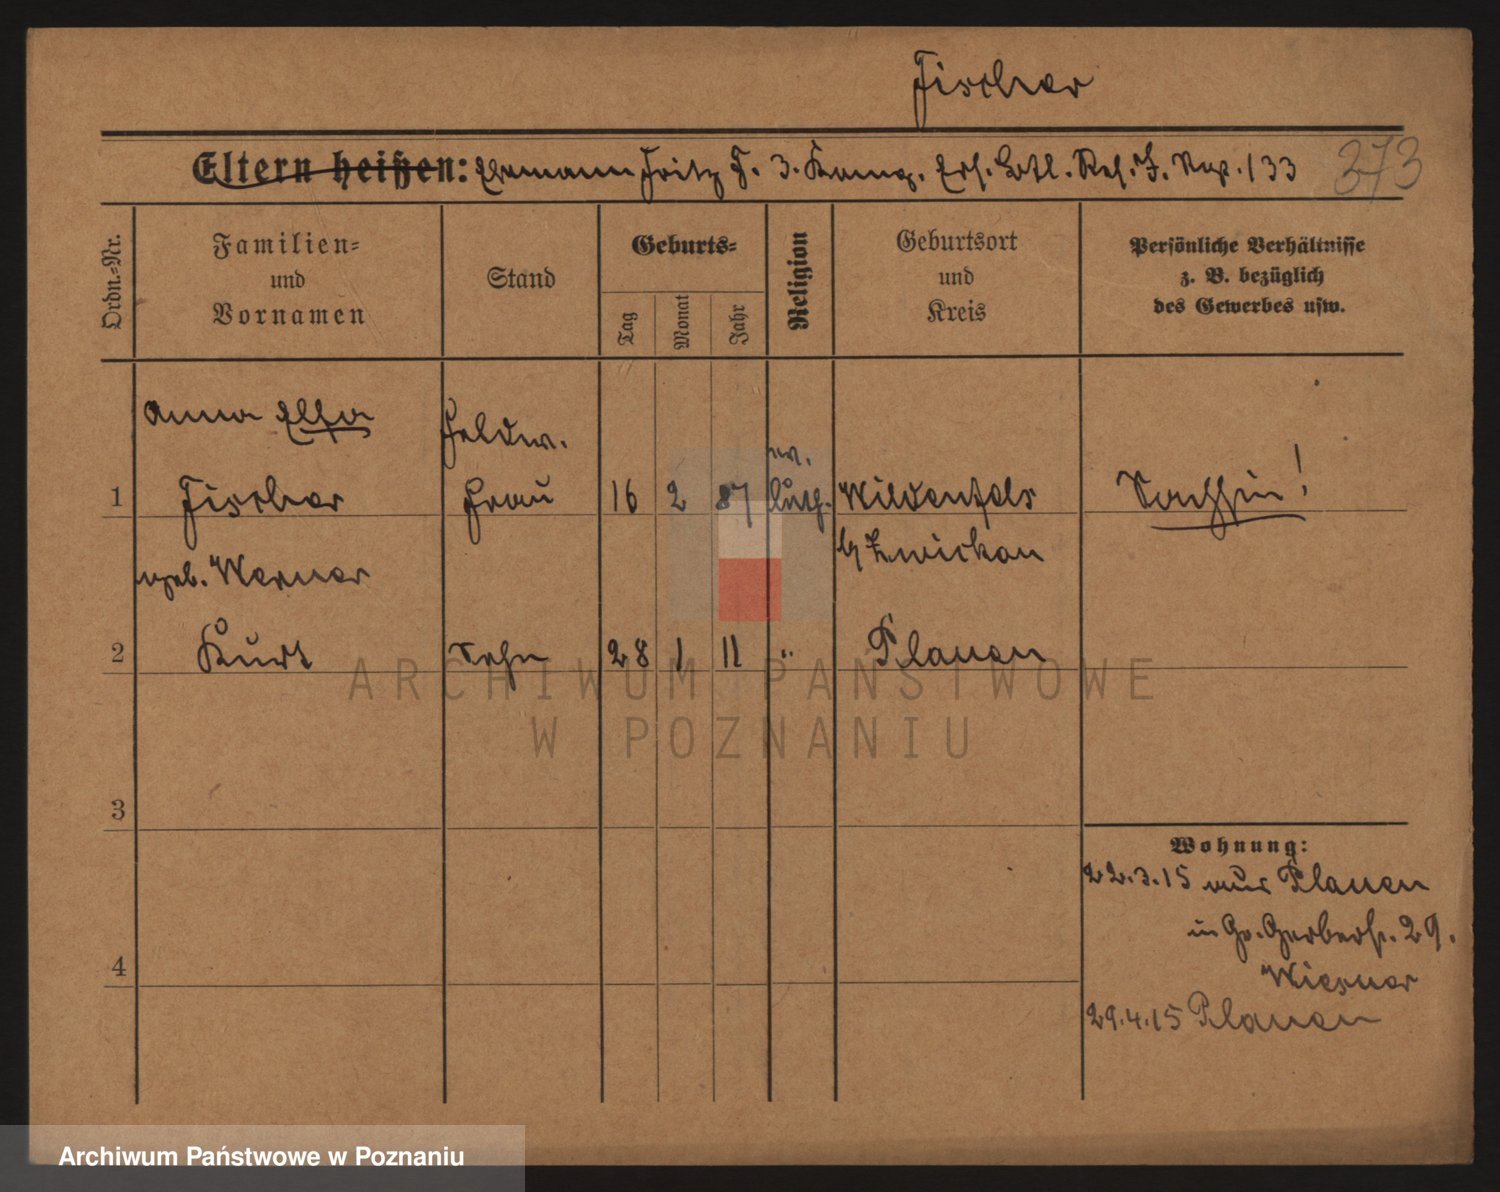 Fischer
Eltern heißen: Ehemann Fritz F. 3. Komp. Ers. Batl. Res. J. Rgt. 133
373
Ordn.-Nr.
Familien-
und
Vornamen
Stand
Geburts-
Tag
Monat
Jahr
Religion
Geburtsort
und
Kreis
Persönliche Verhältnisse
z. B. bezüglich
des Gewerbes usw.
Anna Elsa Feldw.
1 Fischer Frau 16 2 87 ev. luth. Wildenfels Sachsin!
geb. Werner b/ Zwickau
2 Kurt Sohn 28 1 11 " Plauen
3
4
Wohnung:
22.3.15 aus Plauen
in Gr. Gerberstr. 29.
Wiesner
29.4.15 Plauen
ARCHIWUM PAŃSTWOWE
W POZNANIU
Archiwum Państwowe w Poznaniu